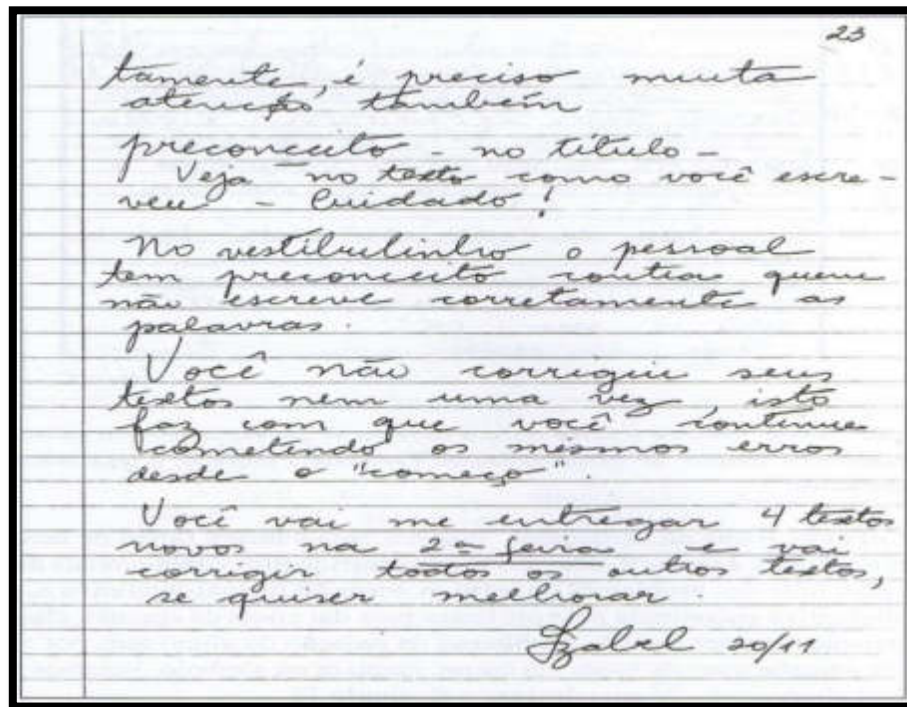 23
tamente, é preciso muita
atenção também
preconceito - no título -
Veja no texto como você escre-
veu - Cuidado!
No vestibulinho o pessoal
tem preconceito contra quem
não escreve corretamente as
palavras.
Você não corrigiu seus
textos nem uma vez, isto
faz com que você continue
cometendo os mesmos erros
desde o "começo".
Você vai me entregar 4 textos
novos na 2ª feira e vai
corrigir todos os outros textos,
se quiser melhorar.
Izabel 20/11